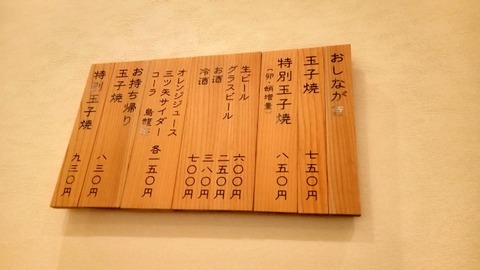 おしながき
玉子焼 七五〇円
特別玉子焼 八五〇円
(卵・蛸増量)
生ビール 六〇〇円
グラスビール 二五〇円
お酒 三八〇円
冷酒 七〇〇円
オレンジジュース
三ツ矢サイダー 各一五〇円
コーラ 烏龍茶
お持ち帰り
玉子焼 八三〇円
特別玉子焼 九三〇円